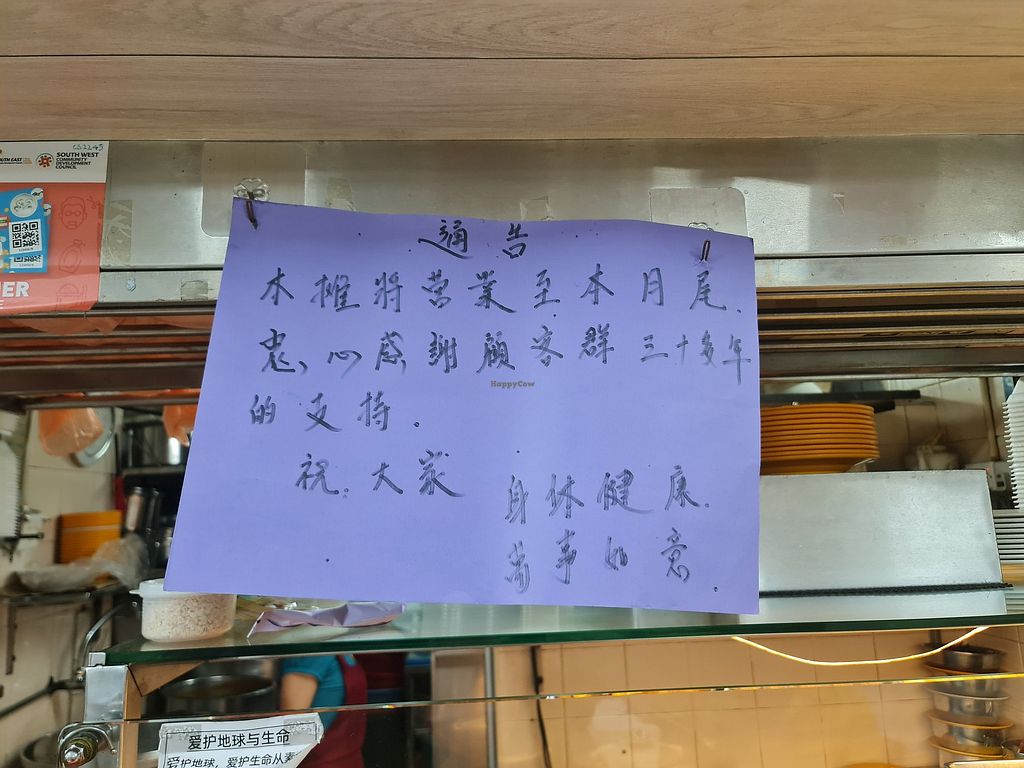 CS2245
SOUTH WEST
COMMUNITY
DEVELOPMENT
COUNCIL
通告
本摊將営業至本月尾.
忠心感謝顧客群三十多年
的支持.
祝:大家
身体健康.
萬事如意.
HappyCow
爱护地球与生命
爱护地球，爱护生命从素